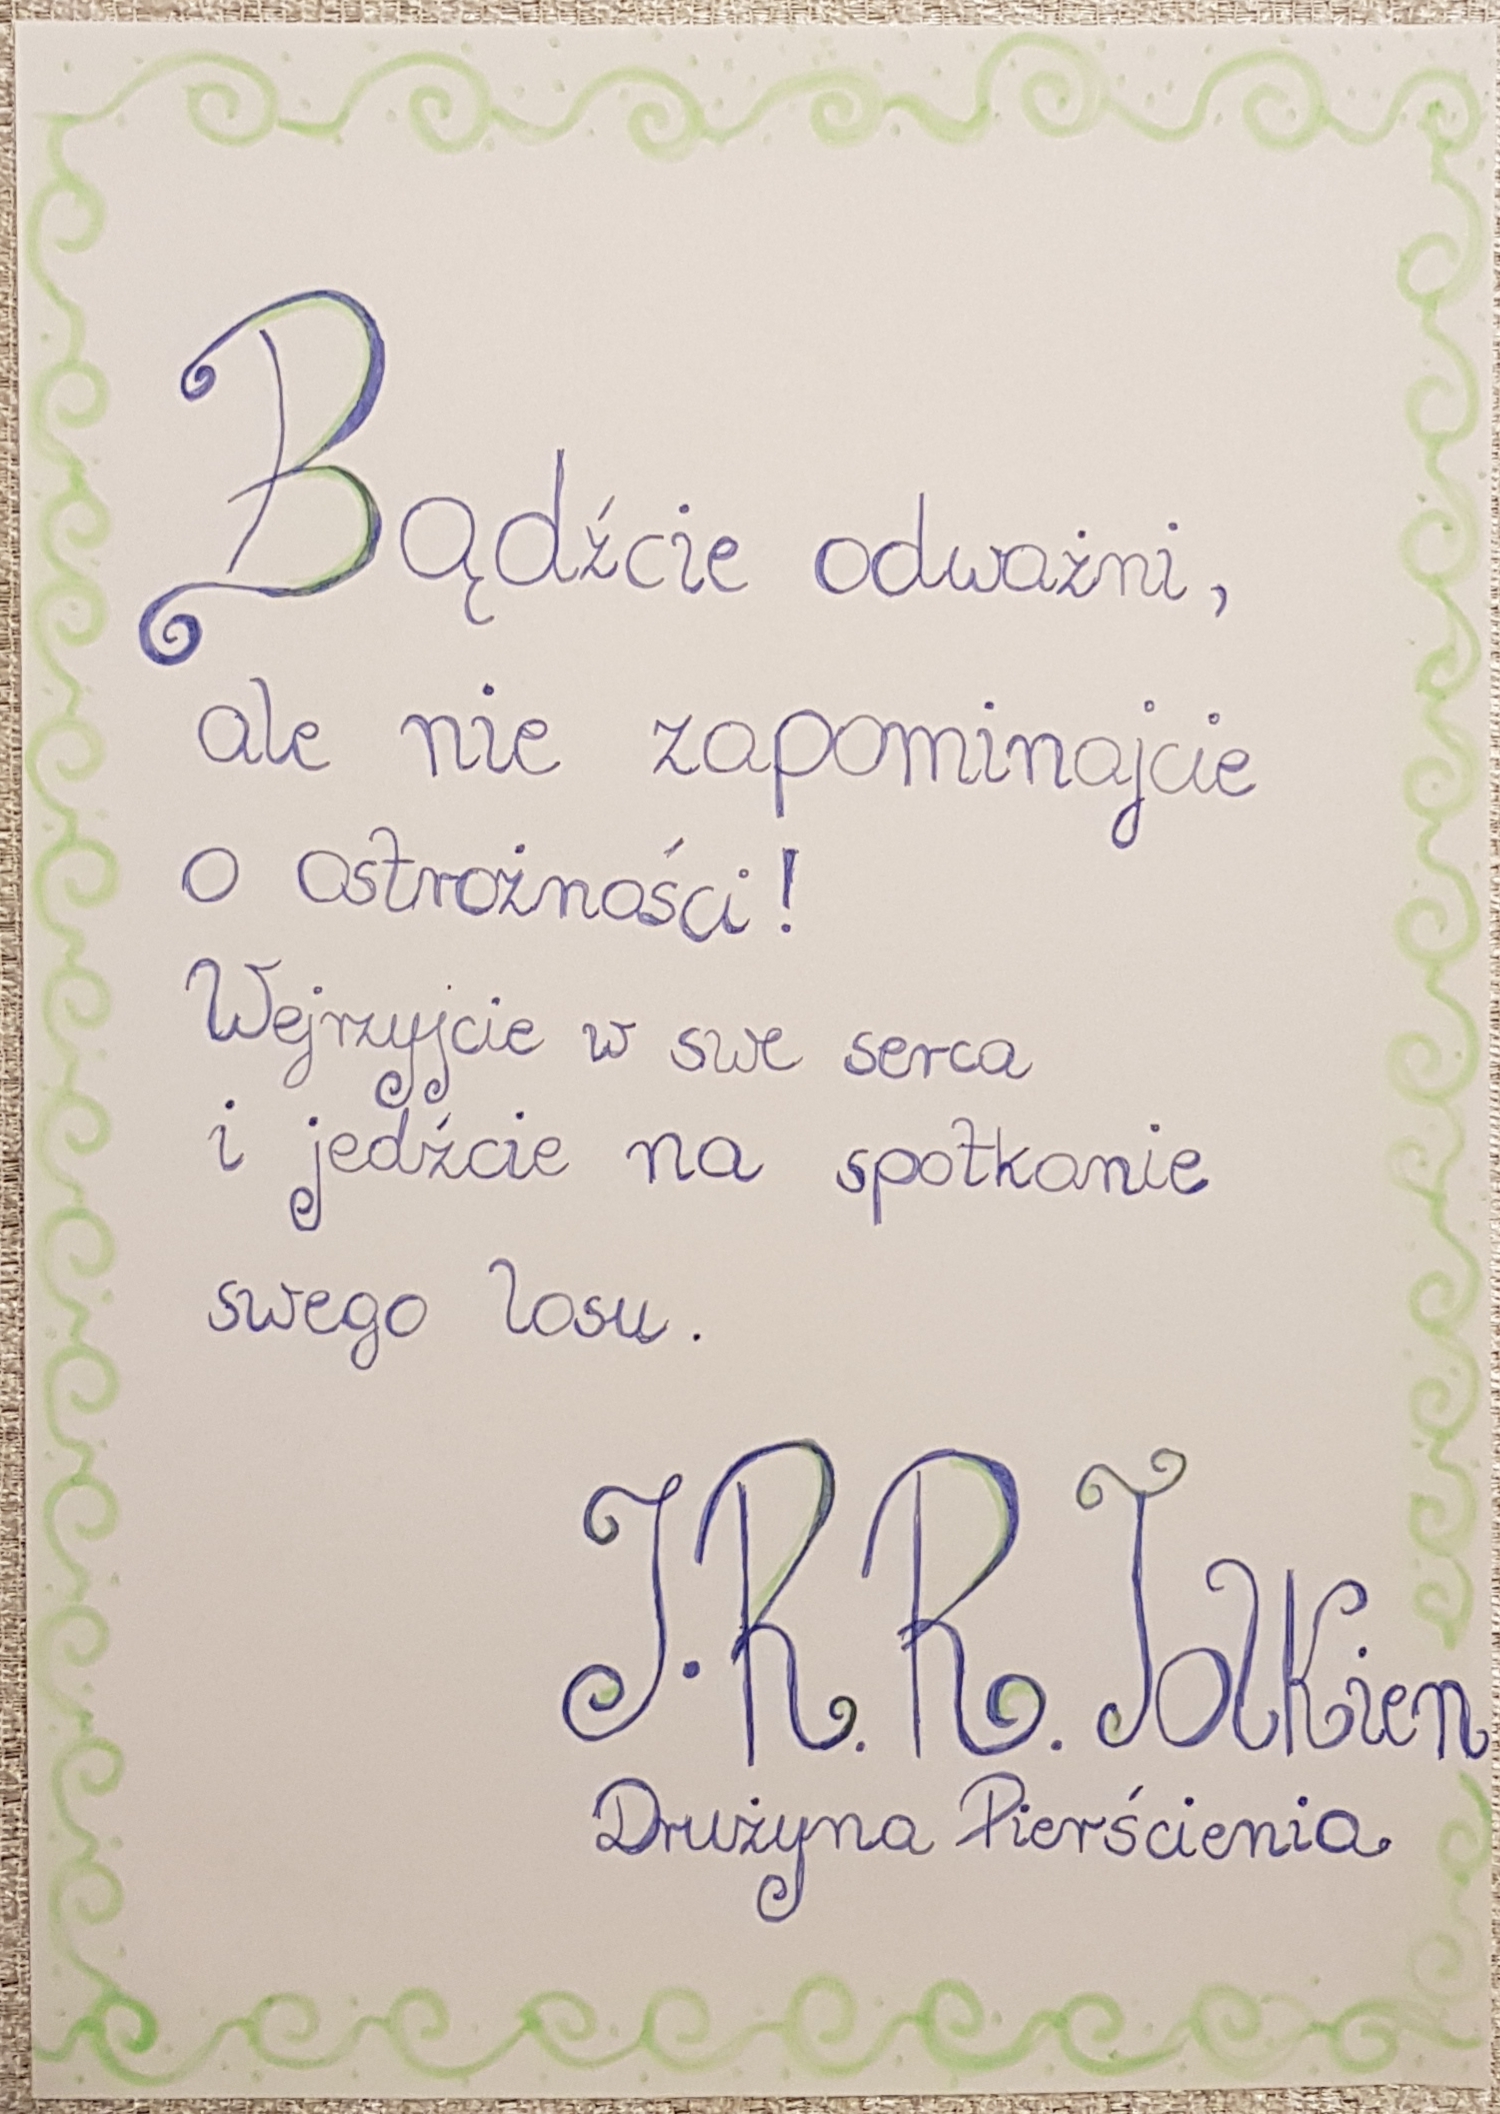 Bądźcie odważni,
ale nie zapominajcie
o ostrożności!
Wejrzyjcie w swe serca
i jedźcie na spotkanie
swego losu.
J. R. R. Tolkien
Drużyna Pierścienia